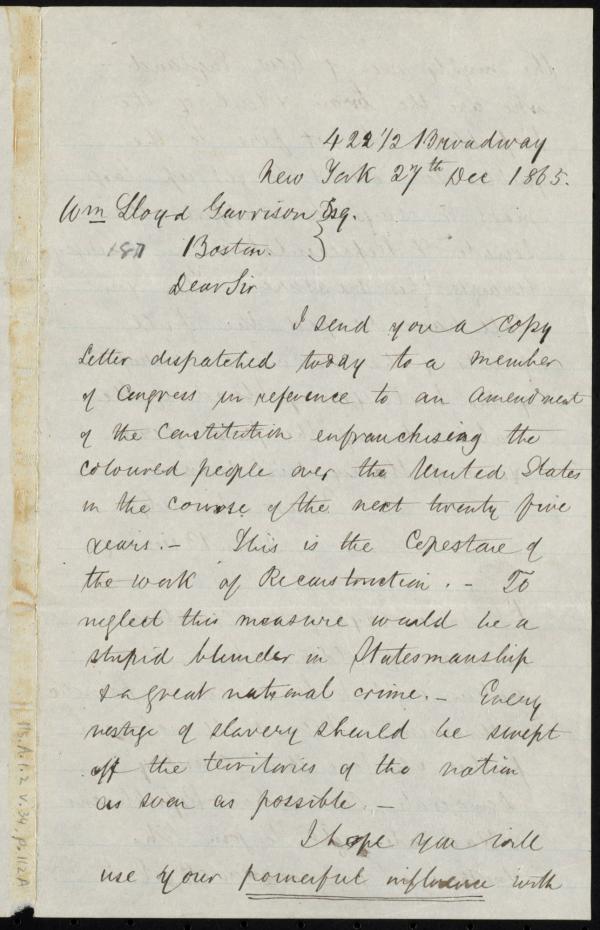 422 1/2 Broadway
New York 27th Dec 1865.
Wm Lloyd Garrison Esq.
187 Boston.
Dear Sir
I send you a copy
letter dispatched today to a member
of Congress in reference to an amendment
of the Constitution enfranchising the
coloured people over the United States
in the course of the next twenty five
years. - This is the Copestone of
the work of Reconstruction. - To
neglect this measure would be a
stupid blunder in Statesmanship
& a great national crime. - Every
vestige of slavery should be swept
off the territories of the nation
as soon as possible. -
I hope you will
use your powerful influence with
Ms.A.1.2 v.34, p.112A